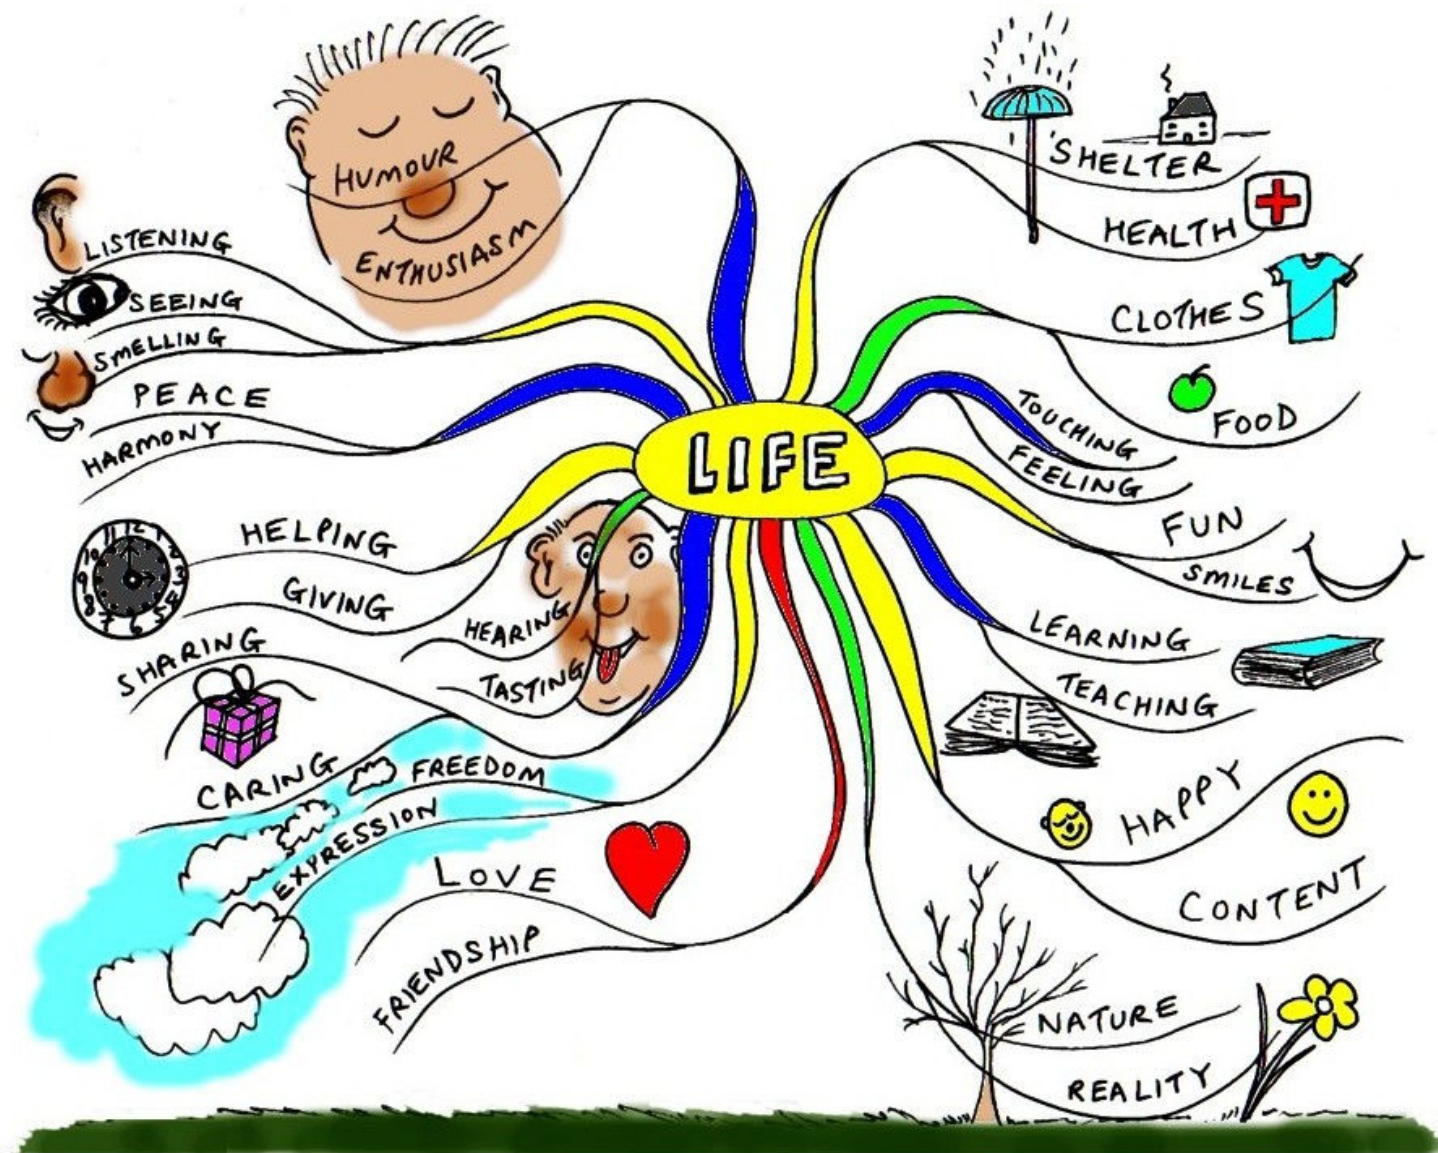 LIFE
HUMOUR
ENTHUSIASM
LISTENING
SEEING
SMELLING
PEACE
HARMONY
HELPING
GIVING
HEARING
TASTING
SHARING
CARING
FREEDOM
EXPRESSION
LOVE
FRIENDSHIP
'SHELTER
HEALTH
CLOTHES
FOOD
TOUCHING
FEELING
FUN
SMILES
LEARNING
TEACHING
HAPPY
CONTENT
NATURE
REALITY